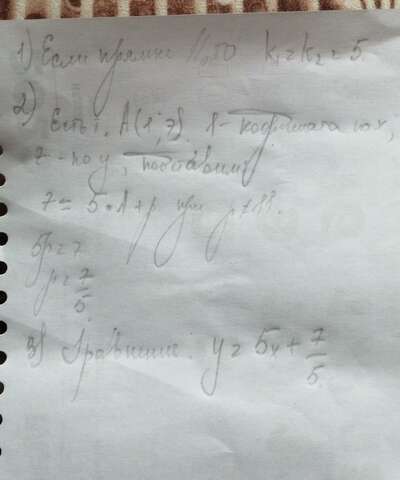 1) Если прямые ||, то k₁ = k₂ = 5.
2) Есть т. A(1; 7). 1 - координата по x,
7 - по y, подставим
7 = 5 • 1 + p при p ≠ 11.
5p = 7
p = 7/5.
3) Уравнение: y = 5x + 7/5